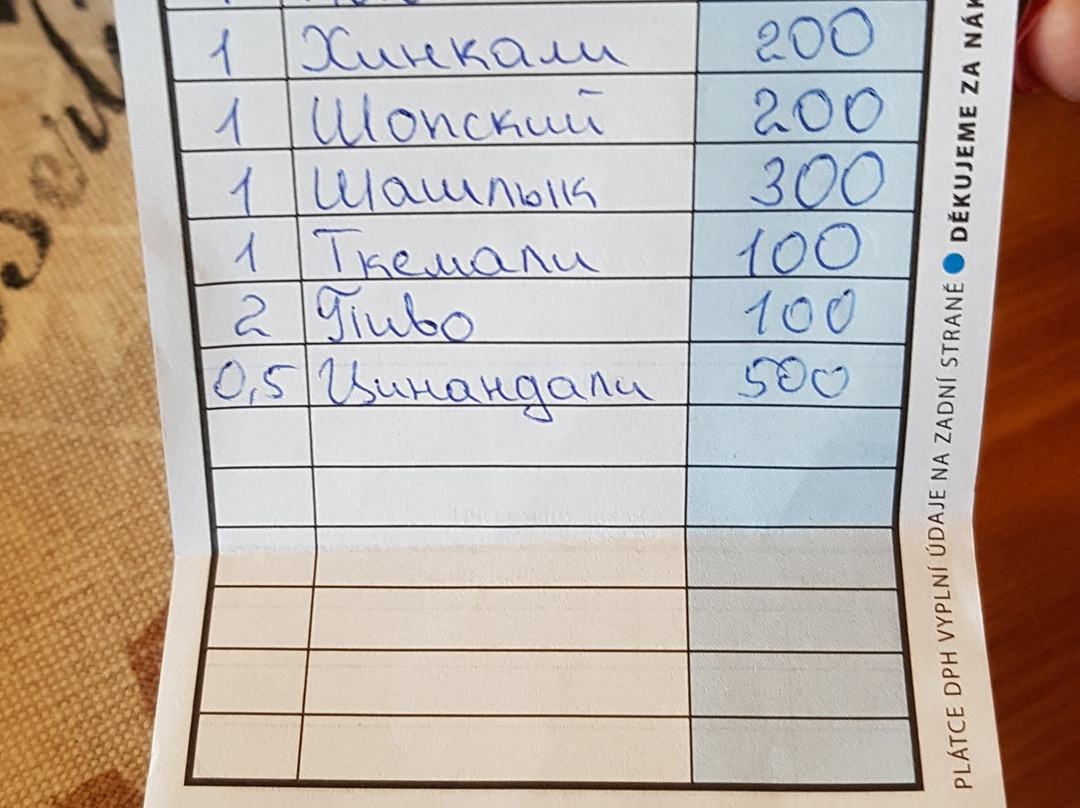 1 Хинкали 200
1 Шопский 200
1 Шашлык 300
1 Ткемали 100
2 Пиво 100
0,5 Цинандали 500
PLÁTCE DPH VYPLNÍ ÚDAJE NA ZADNÍ STRANĚ ● DĚKUJEME ZA